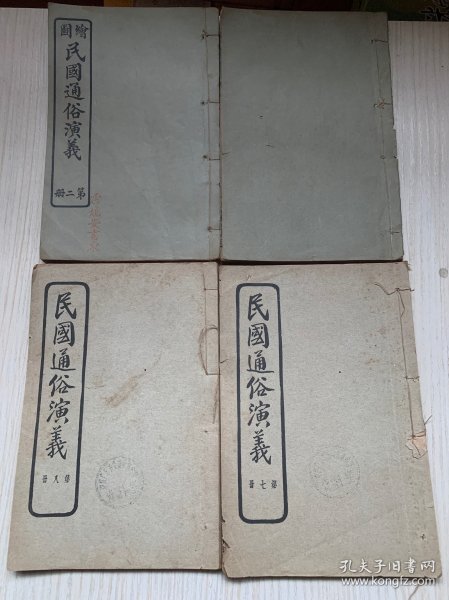 繪圖
民國通俗演義
第二册
民國通俗演義
第八册
民國通俗演義
第七册
孔夫子旧书网
www.kongfz.com